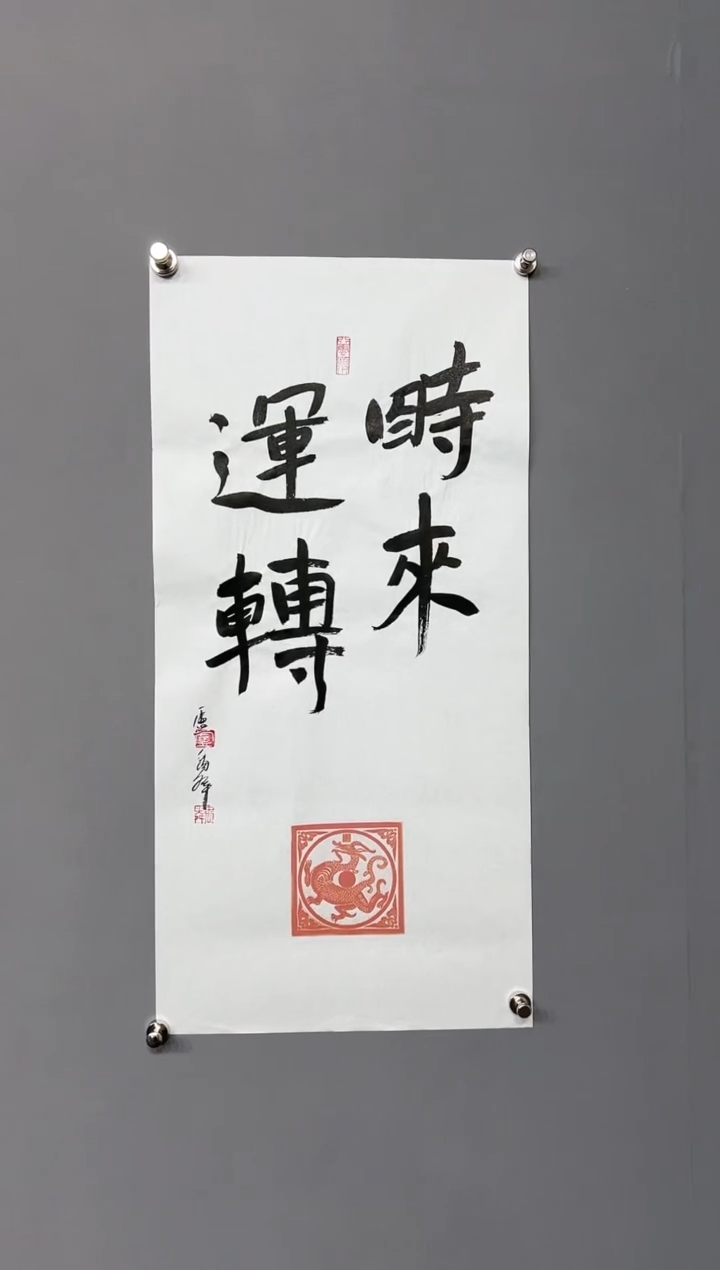 時來
運轉